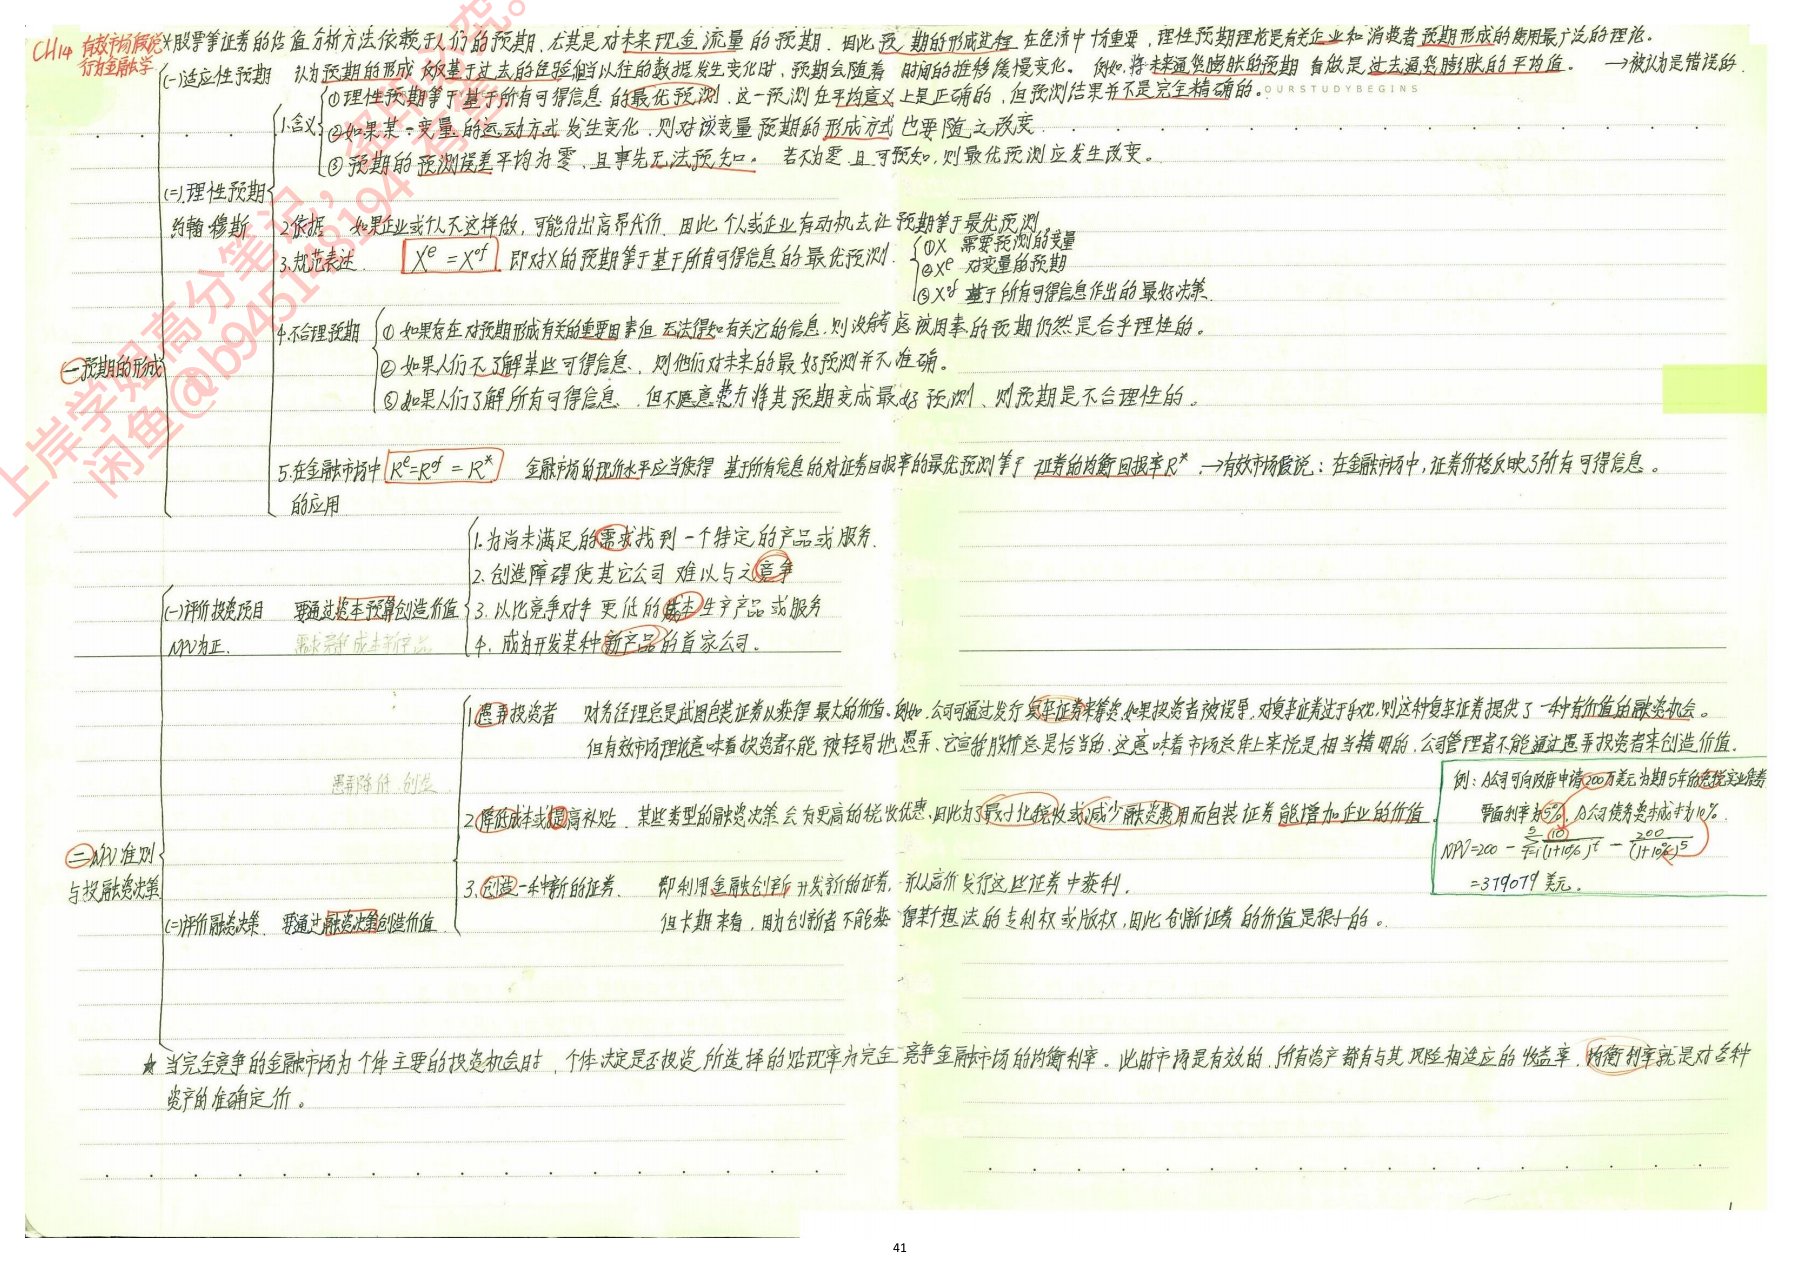 CH14 有效市场假说
行为金融学
*股票等证券的估值分析方法依赖于人们的预期，尤其是对未来现金流量的预期，因此预期的形成过程在经济中十分重要，理性预期理论是有关企业和消费者预期形成的使用最广泛的理论。
一 预期的形成
(一)适应性预期 认为预期的形成仅仅基于过去的经验但当以往的数据发生变化时，预期会随着时间的推移缓慢变化。例如，将未来通货膨胀的预期看做是过去通货膨胀的平均值。 →被认为是错误的
OURSTUDYBEGINS
(二)理性预期
约翰·穆斯
1.含义
①理性预期等于基于所有可得信息的最优预测，这一预测在平均意义上是正确的，但预测结果并不是完全精确的。
②如果某一变量的运动方式发生变化，则对该变量预期的形成方式也要随之改变
③预期的预测误差平均为零，且事先无法预知。 若不为零且可预知，则最优预测应发生改变。
2.依据 如果企业或个人不这样做，可能付出高昂代价，因此个人或企业有动机去让预期等于最优预测
3.规范表述 Xᵉ = Xᵒᶠ 即对X的预期等于基于所有可得信息的最优预测
①X 需要预测的变量
②Xᵉ 对变量的预期
③Xᵒᶠ 基于所有可得信息作出的最好决策
4.不合理预期
①如果存在对预期形成有关的重要因素但无法得知有关它的信息，则没有考虑该因素的预期仍然是合乎理性的。
②如果人们不了解某些可得信息，则他们对未来的最好预测并不准确。
③如果人们了解所有可得信息，但不愿意费力将其预期变成最好预测、则预期是不合理性的。
5.在金融市场中 Rᵉ=Rᵒᶠ = R* 金融市场的现价水平应当使得基于所有信息的对证券回报率的最优预测等于证券的均衡回报率R* →有效市场假说：在金融市场中，证券价格反映了所有可得信息。
的应用
二 NPV准则
与投融资决策
(一)评价投资项目 要通过资本预算创造价值
NPV为正. 需求竞争成本新产品
1.为尚未满足的需求找到一个特定的产品或服务.
2.创造障碍使其它公司难以与之竞争
3.以比竞争对手更低的成本生产产品或服务
4.成为开发某种新产品的首家公司。
(二)评价融资决策 要通过融资决策创造价值
愚弄降低 创造
1.愚弄投资者 财务经理总是试图包装证券以获得最大的价值。例如，公司可通过发行复杂证券来筹资，如果投资者被误导，对复杂证券过于乐观，则这种复杂证券提供了一种有价值的融资机会。
但有效市场理论意味着投资者不能被轻易地愚弄、它宣称股价总是恰当的，这意味着市场总体上来说是相当精明的，公司管理者不能通过愚弄投资者来创造价值.
2.降低成本或提高补贴 某些类型的融资决策会为更高的税收优惠，因此为了最小化税收或减少融资费用而包装证券能增加企业的价值
例：A公司可向政府申请200万美元为期5年的免税实业债券
票面利率为5%，A公司债务资本成本为10%.
NPV=200 − Σ(t=1→5) 10/(1+10%)ᵗ − 200/(1+10%)⁵
=379079美元。
3.创造一种新的证券 即利用金融创新开发新的证券，并从高价发行这些证券中获利.
但长期来看，因为创新者不能获得某个想法的专利权或版权，因此创新证券的价值是很小的。
☆当完全竞争的金融市场为个体主要的投资机会时，个体决定是否投资所选择的贴现率为完全竞争金融市场的均衡利率。此时市场是有效的，所有资产都有与其风险相适应的收益率，均衡利率就是对各种
资产的准确定价。
上岸学姐高分笔记，
闲鱼@b945148194
41